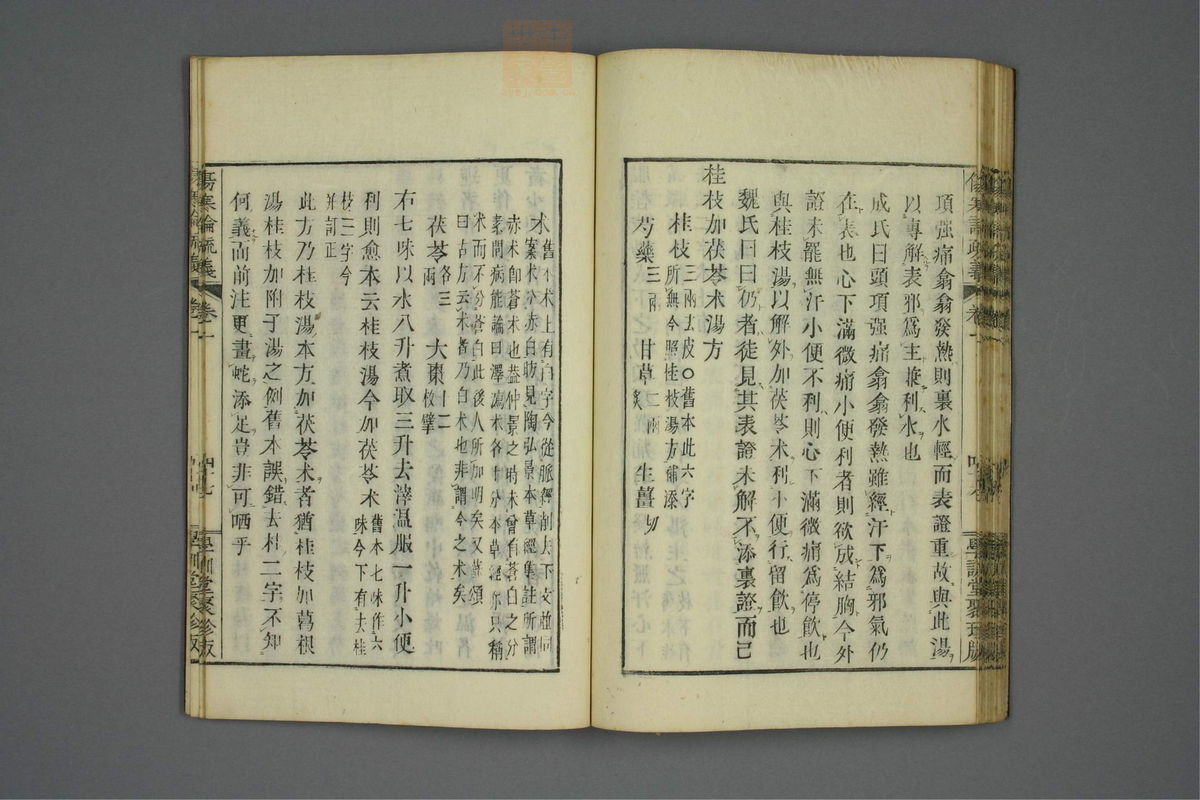 項強痛翕翕發熱則裏水輕而表證重故與此湯
以專解表邪爲主兼利水也
成氏曰頭項强痛翕翕發熱雖經汗下爲邪氣仍
在表也心下滿微痛小便利者則欲成結胸今外
證未罷無汗小便不利則心下滿微痛爲停飲也
與桂枝湯以解外加茯苓朮利小便行留飲也
魏氏曰曰仍者徒見其表證未解不添裏證而已
桂枝加茯苓朮湯方
桂枝三兩去皮○舊本此六字
所無今照桂枝湯方補添
芍藥三兩 甘草二兩炙 生薑切
朮舊本朮上有白字今從脈經削去下文並同
案朮分赤白昉見陶弘景本草經集註所謂
赤朮卽蒼朮也蓋仲景之時未曾有蒼白之分
素問病能論曰澤瀉朮各十分本草經亦只稱
朮而不分蒼白此後人所加明矣又蘇頌
曰古方云朮者乃白朮也非謂今之朮矣
茯苓各三兩 大棗十二枚擘
右七味以水八升煮取三升去滓温服一升小便
利則愈本云桂枝湯今加茯苓朮舊本七味作六
味今下有去桂
枝三字今
並訂正
此方乃桂枝湯本方加茯苓朮者猶桂枝加葛根
湯桂枝加附子湯之例舊本誤錯去桂二字不知
何義而前注更畫蛇添足豈非可哂乎
傷寒論疏義 卷二
四十七
學訓堂聚珍版